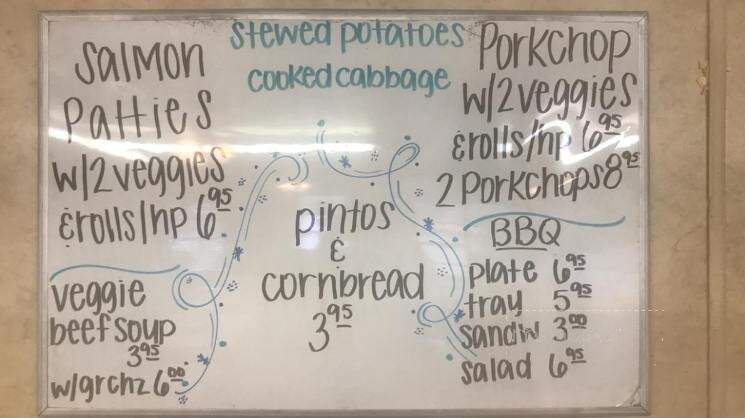 stewed potatoes
cooked cabbage
Salmon
Patties
w/2 veggies
& rolls/hp 6.95
veggie
beef soup
3.95
w/grchz 6.00
pintos
&
cornbread
3.95
Porkchop
w/2 veggies
& rolls/hp 6.95
2 Porkchops 8.95
BBQ
plate 6.95
tray 5.95
sandw 3.00
salad 6.95